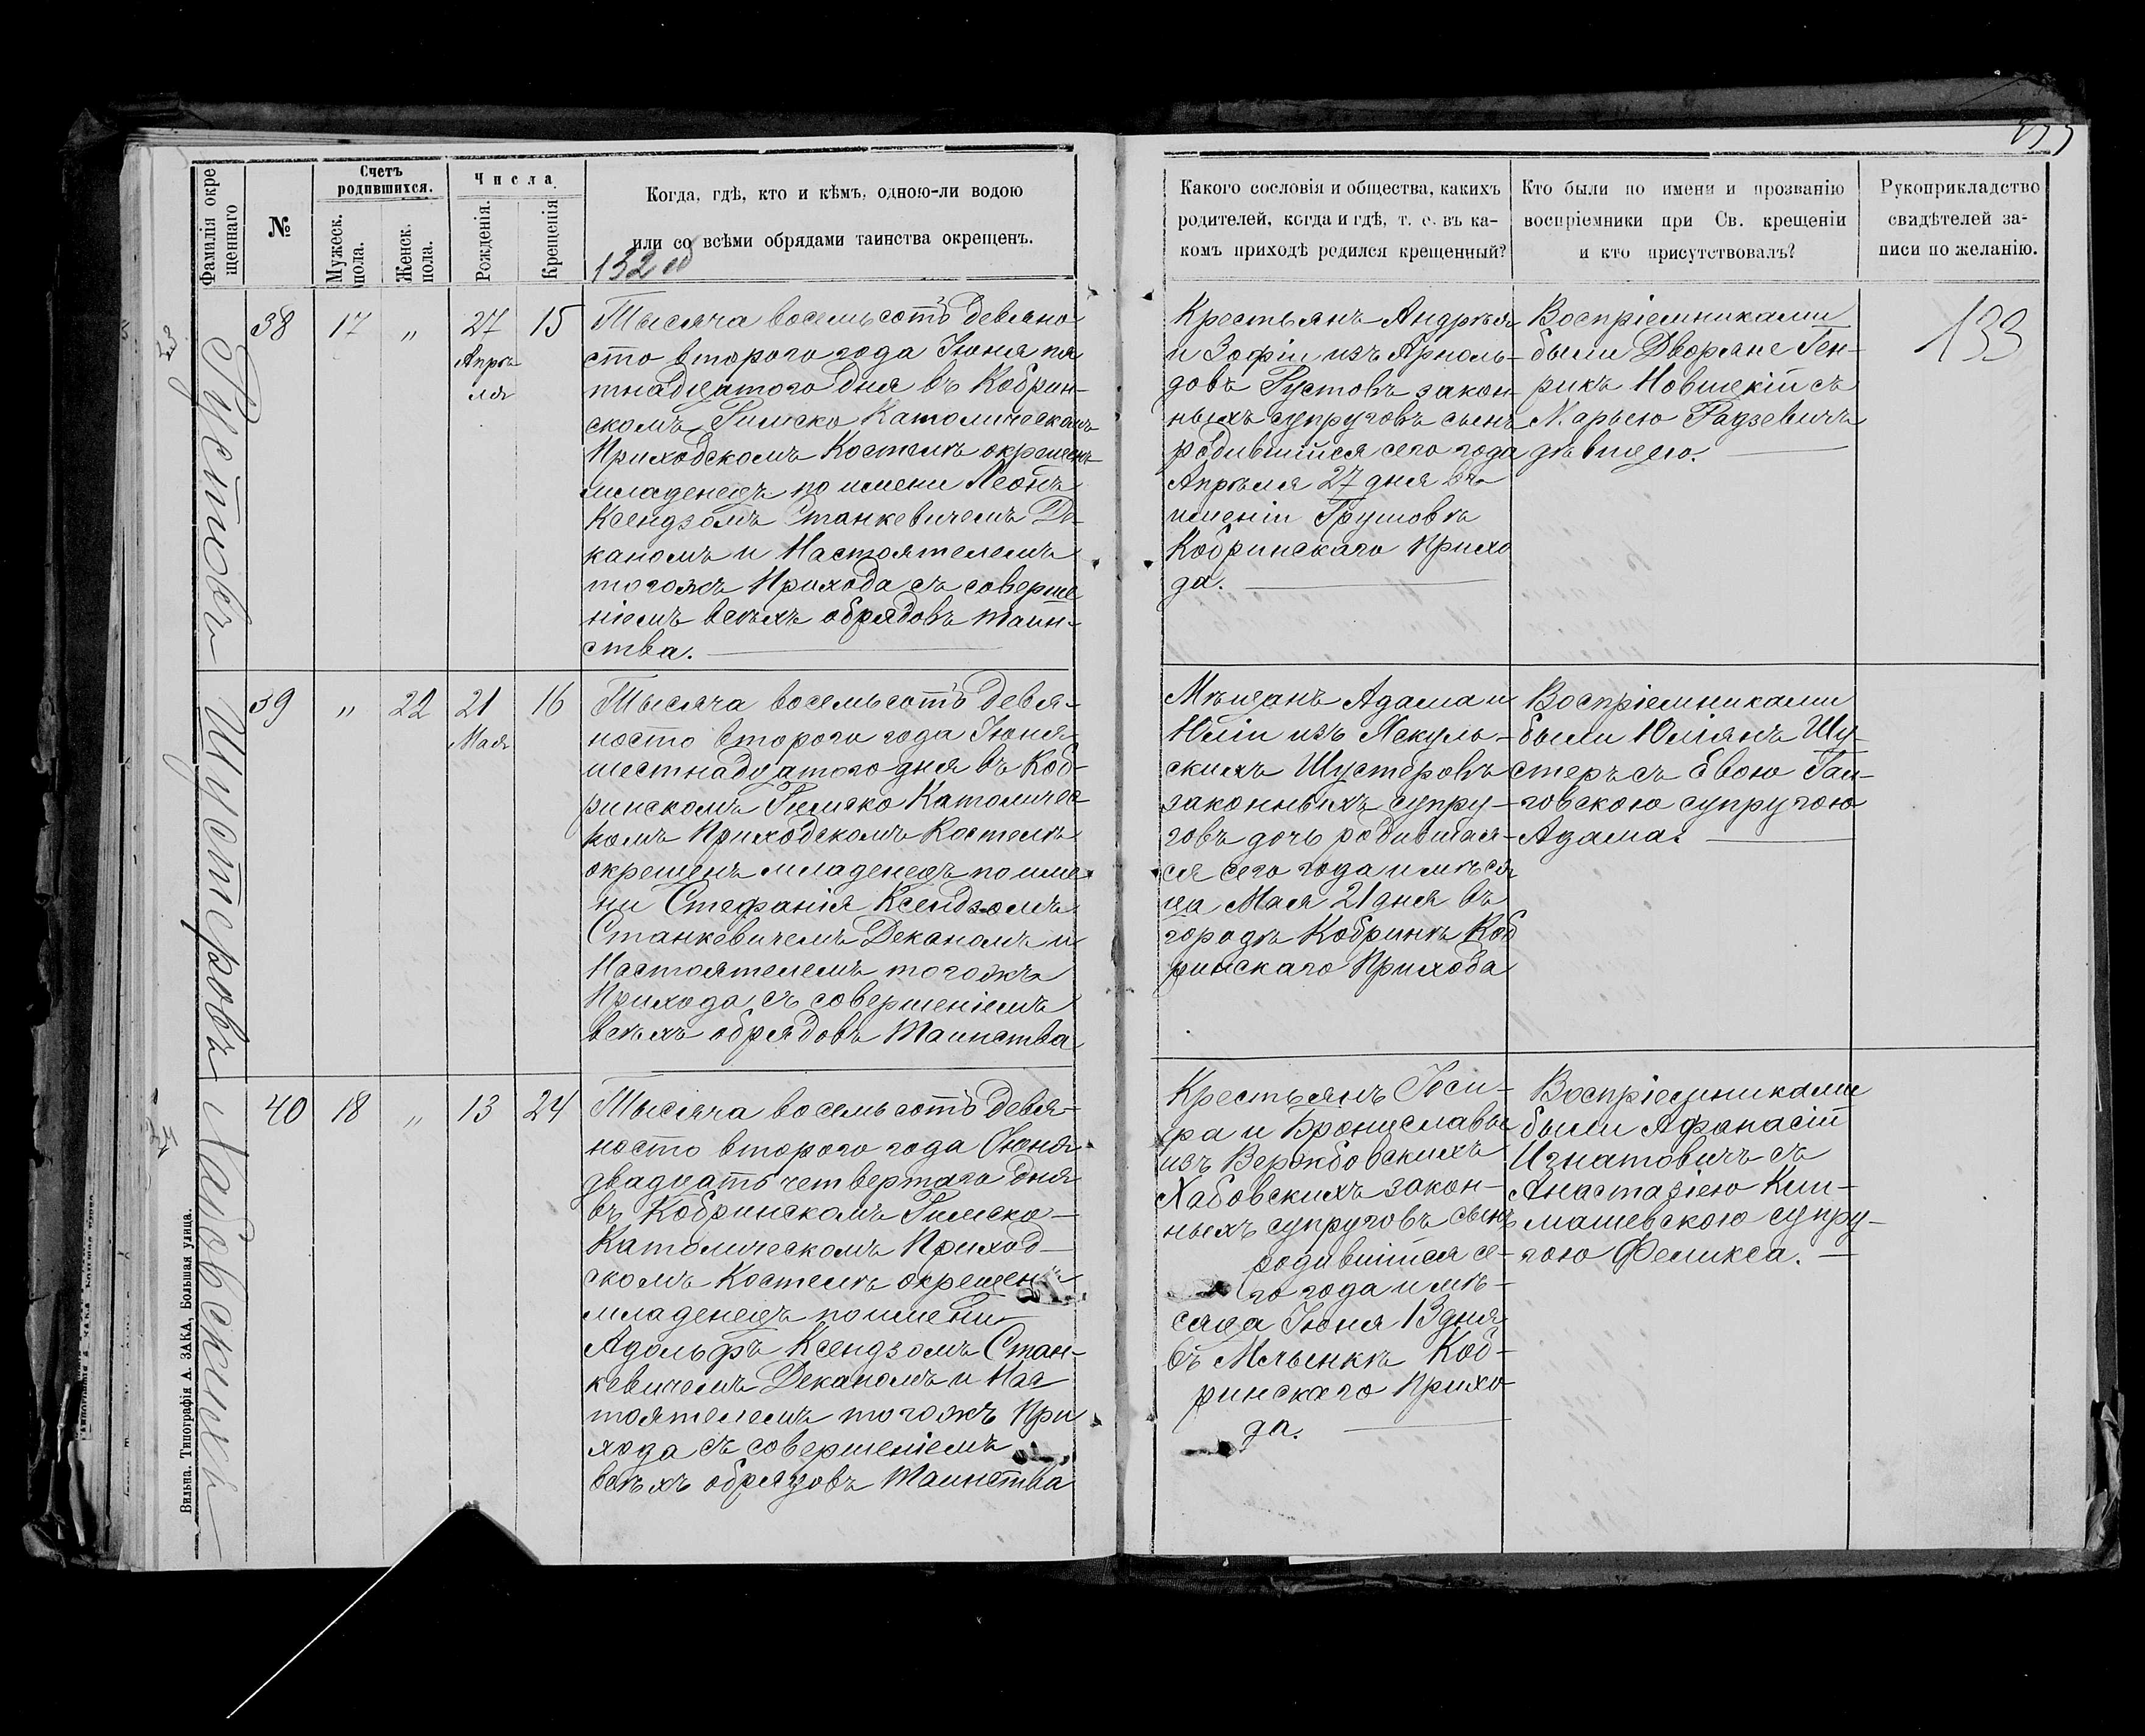 Фамилія окре
щеннаго
№
Счетъ
родившихся.
Мужеск.
пола.
Женск.
пола.
Числа
Рожденія.
Крещенія
Когда, гдѣ, кто и кѣмъ, одною-ли водою
или со всѣми обрядами таинства окрещенъ.
132
Какого сословія и общества, какихъ
родителей, когда и гдѣ, т. е. въ ка-
комъ приходѣ родился крещенный?
Кто были по имени и прозванію
воспріемники при Св. крещеніи
и кто присутствовалъ?
Рукоприкладство
свидѣтелей за-
писи по желанію.
Рустовъ
38
17
„
27
Апрѣ
ля
15
Тысяча восемьсотъ девяно-
сто второго года Іюня пя
тнадцатого дня въ Кобрин-
скомъ Римско Католическомъ
Приходскомъ Костелѣ окрещенъ
младенецъ по имени Леонъ
Ксендзомъ Станкевичемъ Де-
каномъ и Настоятелемъ
тогожъ Прихода съ соверше
ніемъ всѣхъ обрядовъ таин-
ства.
Крестьянъ Андрѣя
и Зофіи изъ Арноль-
довъ Рустовъ закон-
ныхъ супруговъ сынъ
родившійся сего года
Апрѣля 27 дня въ
имѣніи Грушовкѣ
Кобринскаго Прихо
да.
Воспріемниками
были Дворяне Ген-
рикъ Новицкій съ
Марьею Радзевичъ
дѣвицею.
133
Шустеровъ
39
„
22
21
Мая
16
Тысяча восемьсотъ девя-
носто второго года Іюня
шестнадцатого дня въ Коб-
ринскомъ Римско Католичес-
комъ Приходскомъ Костелѣ
окрещенъ младенецъ по име
ни Стефанія Ксендзомъ
Станкевичемъ Деканомъ и
Настоятелемъ тогожъ
Прихода съ совершеніемъ
всѣхъ обрядовъ Таинства
Мѣщанъ Адама и
Юліи изъ Яскуль-
скихъ Шустеровъ
законныхъ супру-
говъ дочь родившая-
ся сего года и мѣся
ца Мая 21 дня въ
городѣ Кобринѣ Коб
ринскаго Прихода
Воспріемниками
были Юліянъ Шу-
стеръ съ Евою
супругою
Адама.
Хабовскихъ
40
18
„
13
24
Тысяча восемьсотъ девя-
носто второго года Іюня
двадцать четвертаго дня
въ Кобринскомъ Римско-
Католическомъ Приход-
скомъ Костелѣ окрещенъ
младенецъ по имени
Адольфъ Ксендзомъ Стан-
кевичемъ Деканомъ и Нас
тоятелемъ тогожъ При
хода съ совершеніемъ
всѣхъ обрядовъ Таинства
Крестьянъ
и Брониславы
изъ Вержбовскихъ
Хабовскихъ закон-
ныхъ супруговъ сынъ
родившійся се-
го года и мѣ-
сяца Іюня 13 дня
въ Коб-
ринскаго Прихо
да.
Воспріемниками
были Афанасій
Игнатовичъ съ
Анастазіею Кли-
машевскою супру-
гою Феликса.
Вильна. Типографія А. ЗАКА, Большая улица.